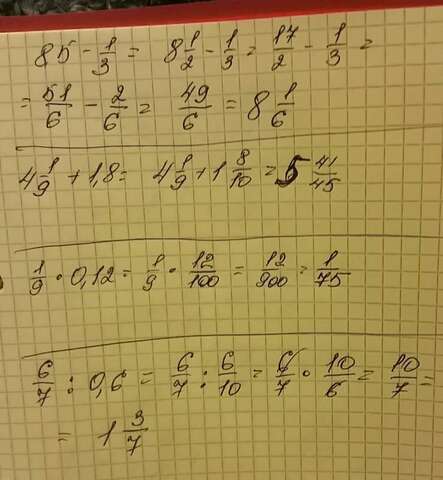 85 - 1/3 = 8 1/2 - 1/3 = 17/2 - 1/3 =
= 51/6 - 2/6 = 49/6 = 8 1/6
4 1/9 + 1,8 = 4 1/9 + 1 8/10 = 5 41/45
1/9 · 0,12 = 1/9 · 12/100 = 12/900 = 1/75
6/7 : 0,6 = 6/7 : 6/10 = 6/7 · 10/6 = 10/7 =
= 1 3/7